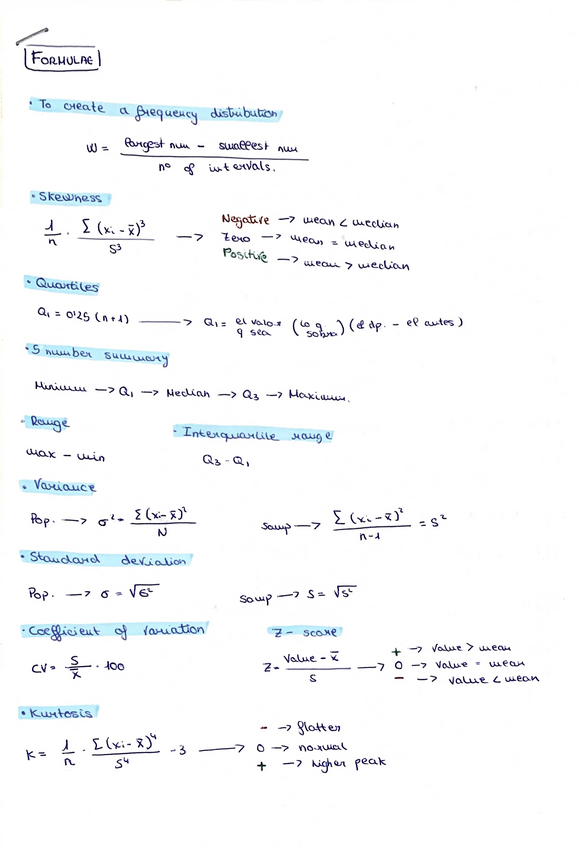 FORMULAE
· To create a frequency distribution
W = largest num - smallest num / nº of intervals.
· Skewness
1/n · Σ(xi - x̄)³ / S³ →
Negative → mean < median
Zero → mean = median
Positive → mean > median
· Quartiles
Q₁ = 0'25 (n+1) → Q₁ = el valor q sea (lo q sobra) (el dp. - el antes)
· 5 number summary
Minimum → Q₁ → Median → Q₃ → Maximum.
· Range
· Interquartile range
max - min
Q₃ - Q₁
· Variance
Pop. → σ² = Σ(xi - x̄)² / N
samp → Σ(xi - x̄)² / n-1 = S²
· Standard deviation
Pop. → σ = √σ²
samp → S = √S²
· Coefficient of variation
Z - score
CV = S / x̄ · 100
Z = value - x̄ / S →
+ → value > mean
0 → value = mean
- → value < mean
· Kurtosis
K = 1/n · Σ(xi - x̄)⁴ / S⁴ - 3 →
- → flatter
0 → normal
+ → higher peak